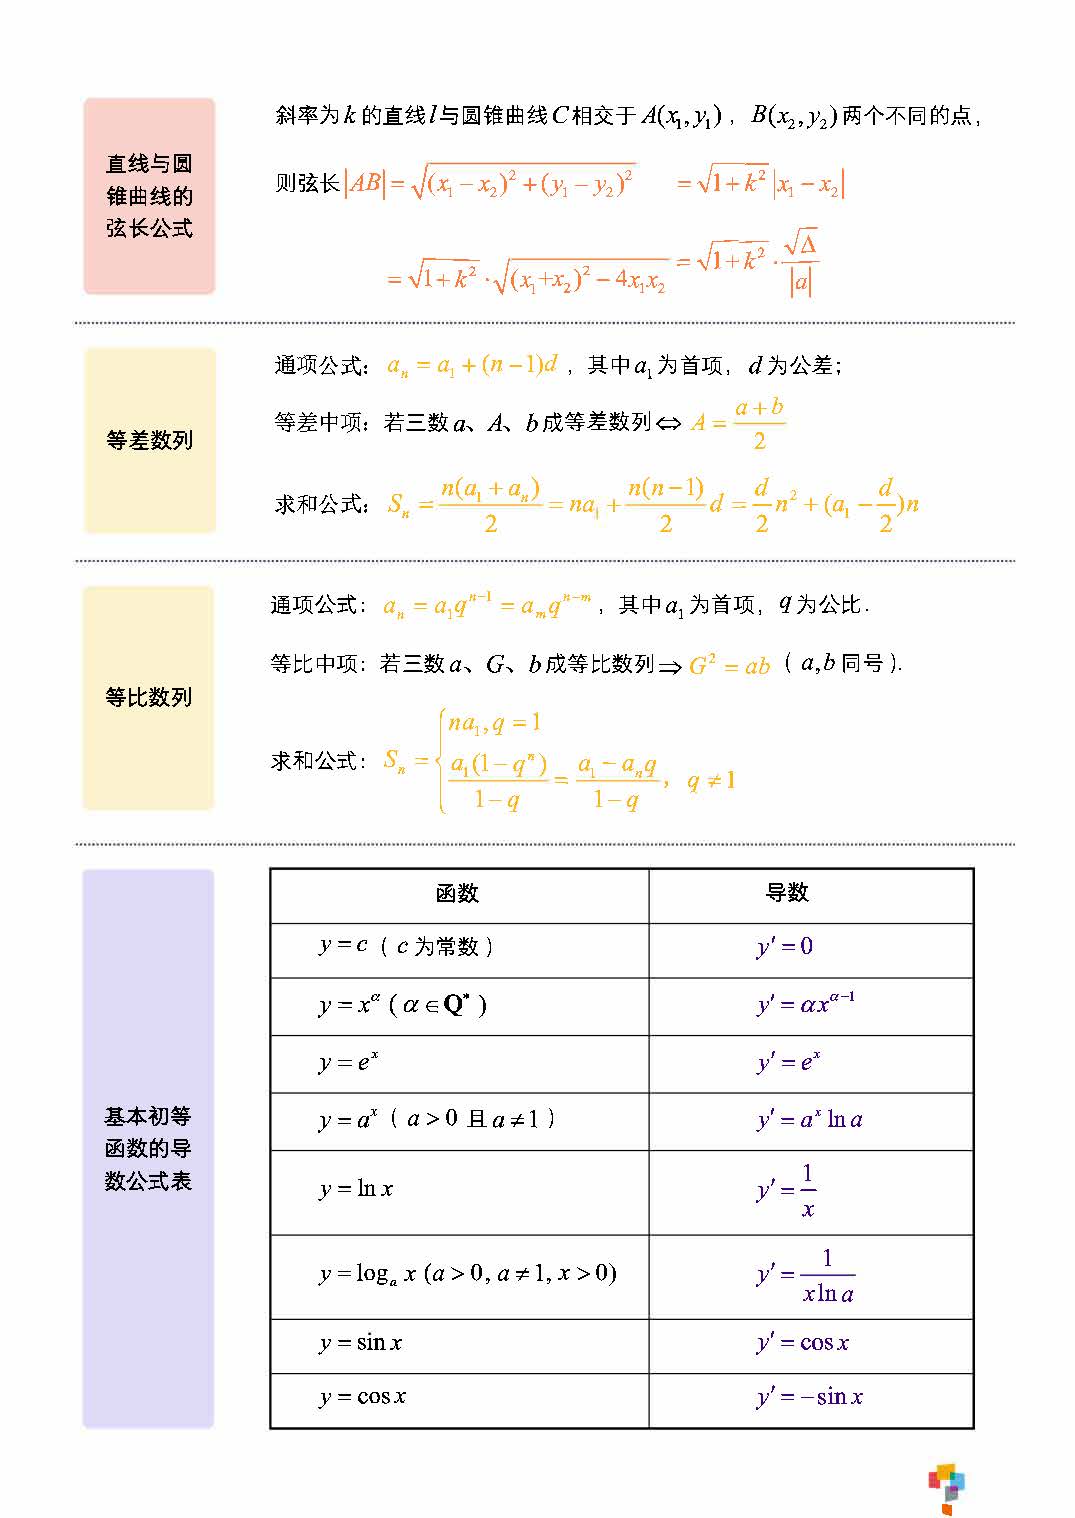 直线与圆
锥曲线的
弦长公式
斜率为k的直线l与圆锥曲线C相交于A(x₁,y₁)，B(x₂,y₂)两个不同的点，
则弦长|AB|=√((x₁−x₂)²+(y₁−y₂)²) =√(1+k²)|x₁−x₂|
=√(1+k²)·√((x₁+x₂)²−4x₁x₂) =√(1+k²)·√Δ/|a|
等差数列
通项公式：aₙ=a₁+(n−1)d，其中a₁为首项，d为公差；
等差中项：若三数a、A、b成等差数列⇔A=(a+b)/2
求和公式：Sₙ=n(a₁+aₙ)/2=na₁+n(n−1)/2 d=d/2 n²+(a₁−d/2)n
等比数列
通项公式：aₙ=a₁qⁿ⁻¹=aₘqⁿ⁻ᵐ，其中a₁为首项，q为公比.
等比中项：若三数a、G、b成等比数列⇒G²=ab（a,b同号).
求和公式：Sₙ={na₁,q=1
a₁(1−qⁿ)/(1−q)=(a₁−aₙq)/(1−q)，q≠1
基本初等
函数的导
数公式表
函数 导数
y=c（c为常数） y′=0
y=x^α (α∈Q*) y′=αx^(α−1)
y=eˣ y′=eˣ
y=aˣ（a>0且a≠1） y′=aˣ ln a
y=ln x y′=1/x
y=logₐ x (a>0, a≠1, x>0) y′=1/(x ln a)
y=sin x y′=cos x
y=cos x y′=−sin x